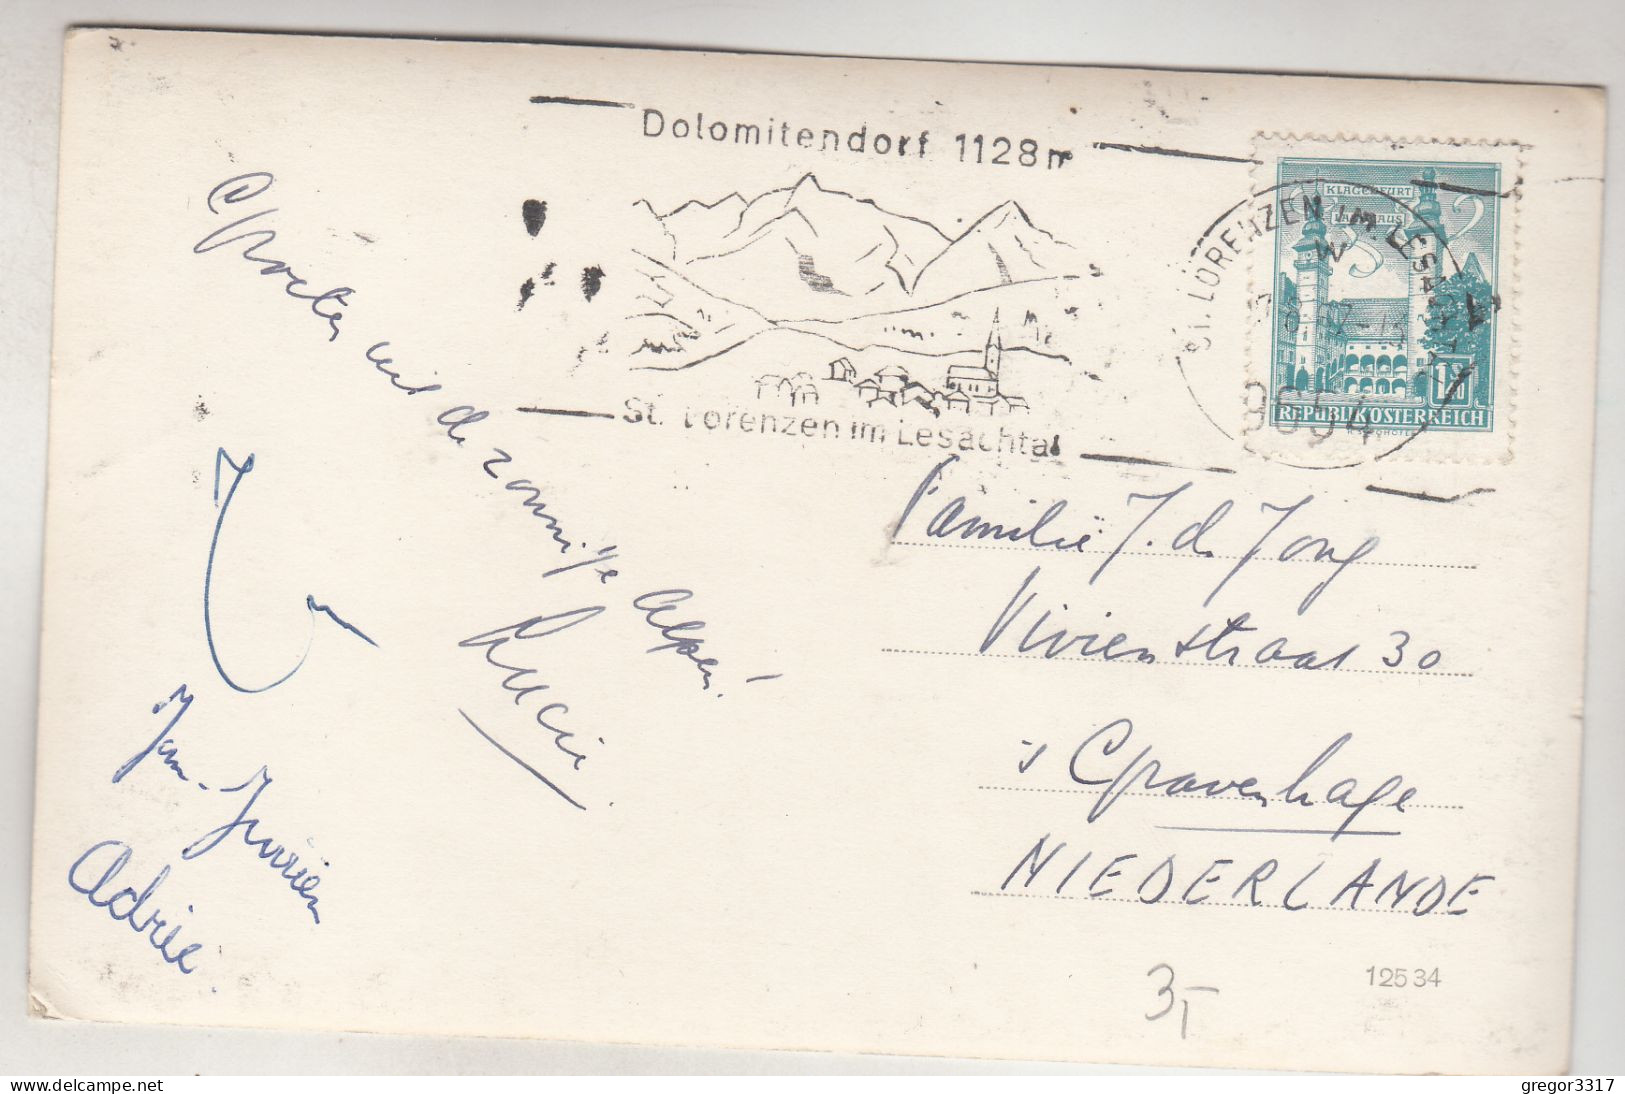 Dolomitendorf 1128m
St. Lorenzen im Lesachtal
ST. LORENZEN IM LESACHTAL
9654
KLAGENFURT
LANDHAUS
REPUBLIK ÖSTERREICH
Groeten uit de zonnige Alpen!
Lucie
Jan-Jurriën
Adrie.
Familie J. de Jong
Vivienstraat 30
's Gravenhage
NIEDERLANDE
12534
3,-
gregor3317
delcampe.net